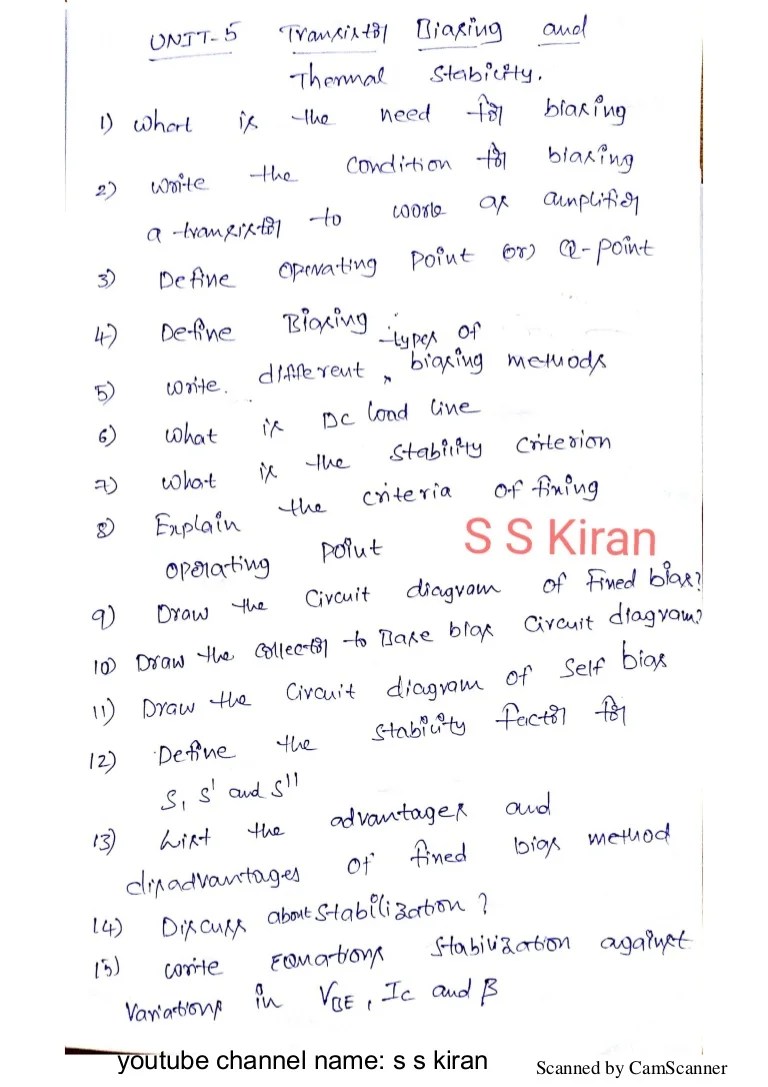 UNIT-5 Transistor Biasing and
Thermal Stability.
1) What is the need for biasing
2) Write the condition for biasing
a transistor to work as amplifier
3) Define operating point (or) Q-point
4) Define Biasing
5) write different types of biasing methods
6) What is DC load line
7) What is the stability criterion
8) Explain the criteria of fixing
operating point
S S Kiran
9) Draw the circuit diagram of Fixed bias?
10) Draw the collector to Base bias circuit diagram?
11) Draw the circuit diagram of self bias
12) Define the stability factor for
S, S' and S''
13) List the advantages and
disadvantages of fixed bias method
14) Discuss about stabilization?
15) write Equations stabilization against
variations in VBE, Ic and β
youtube channel name: s s kiran
Scanned by CamScanner